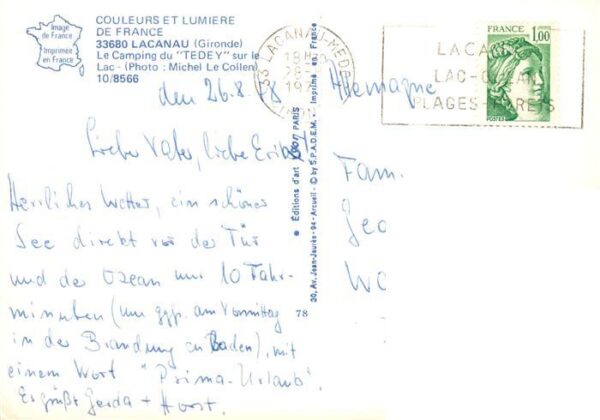 Image
de France
Imprimée
en France
COULEURS ET LUMIERE
DE FRANCE
33680 LACANAU (Gironde)
Le Camping du "TEDEY" sur le
Lac - (Photo : Michel Le Collen)
10/8566
33 LACANAU-MEDOC
18H
LACANAU
LAC-OCEAN
PLAGES-FORETS
FRANCE
1,00
POSTES
den 26.8.78
Allemagne
Liebe Vater, liebe Erika!
Herrliches Wetter, ein schöner
See direkt vor der Tür
und der Ozean nur 10 Fahr-
minuten (um ggf. am Vormittag
in der Brandung zu Baden), mit
einem Wort "Prima-Urlaub".
Es grüßt Gerda + Horst.
Fam.
Geo
Wo
Editions d'art YVON PARIS
30, Av. Jean-Jaurès - 94 - Arcueil - © by S.P.A.D.E.M. - Imprimé en France
78